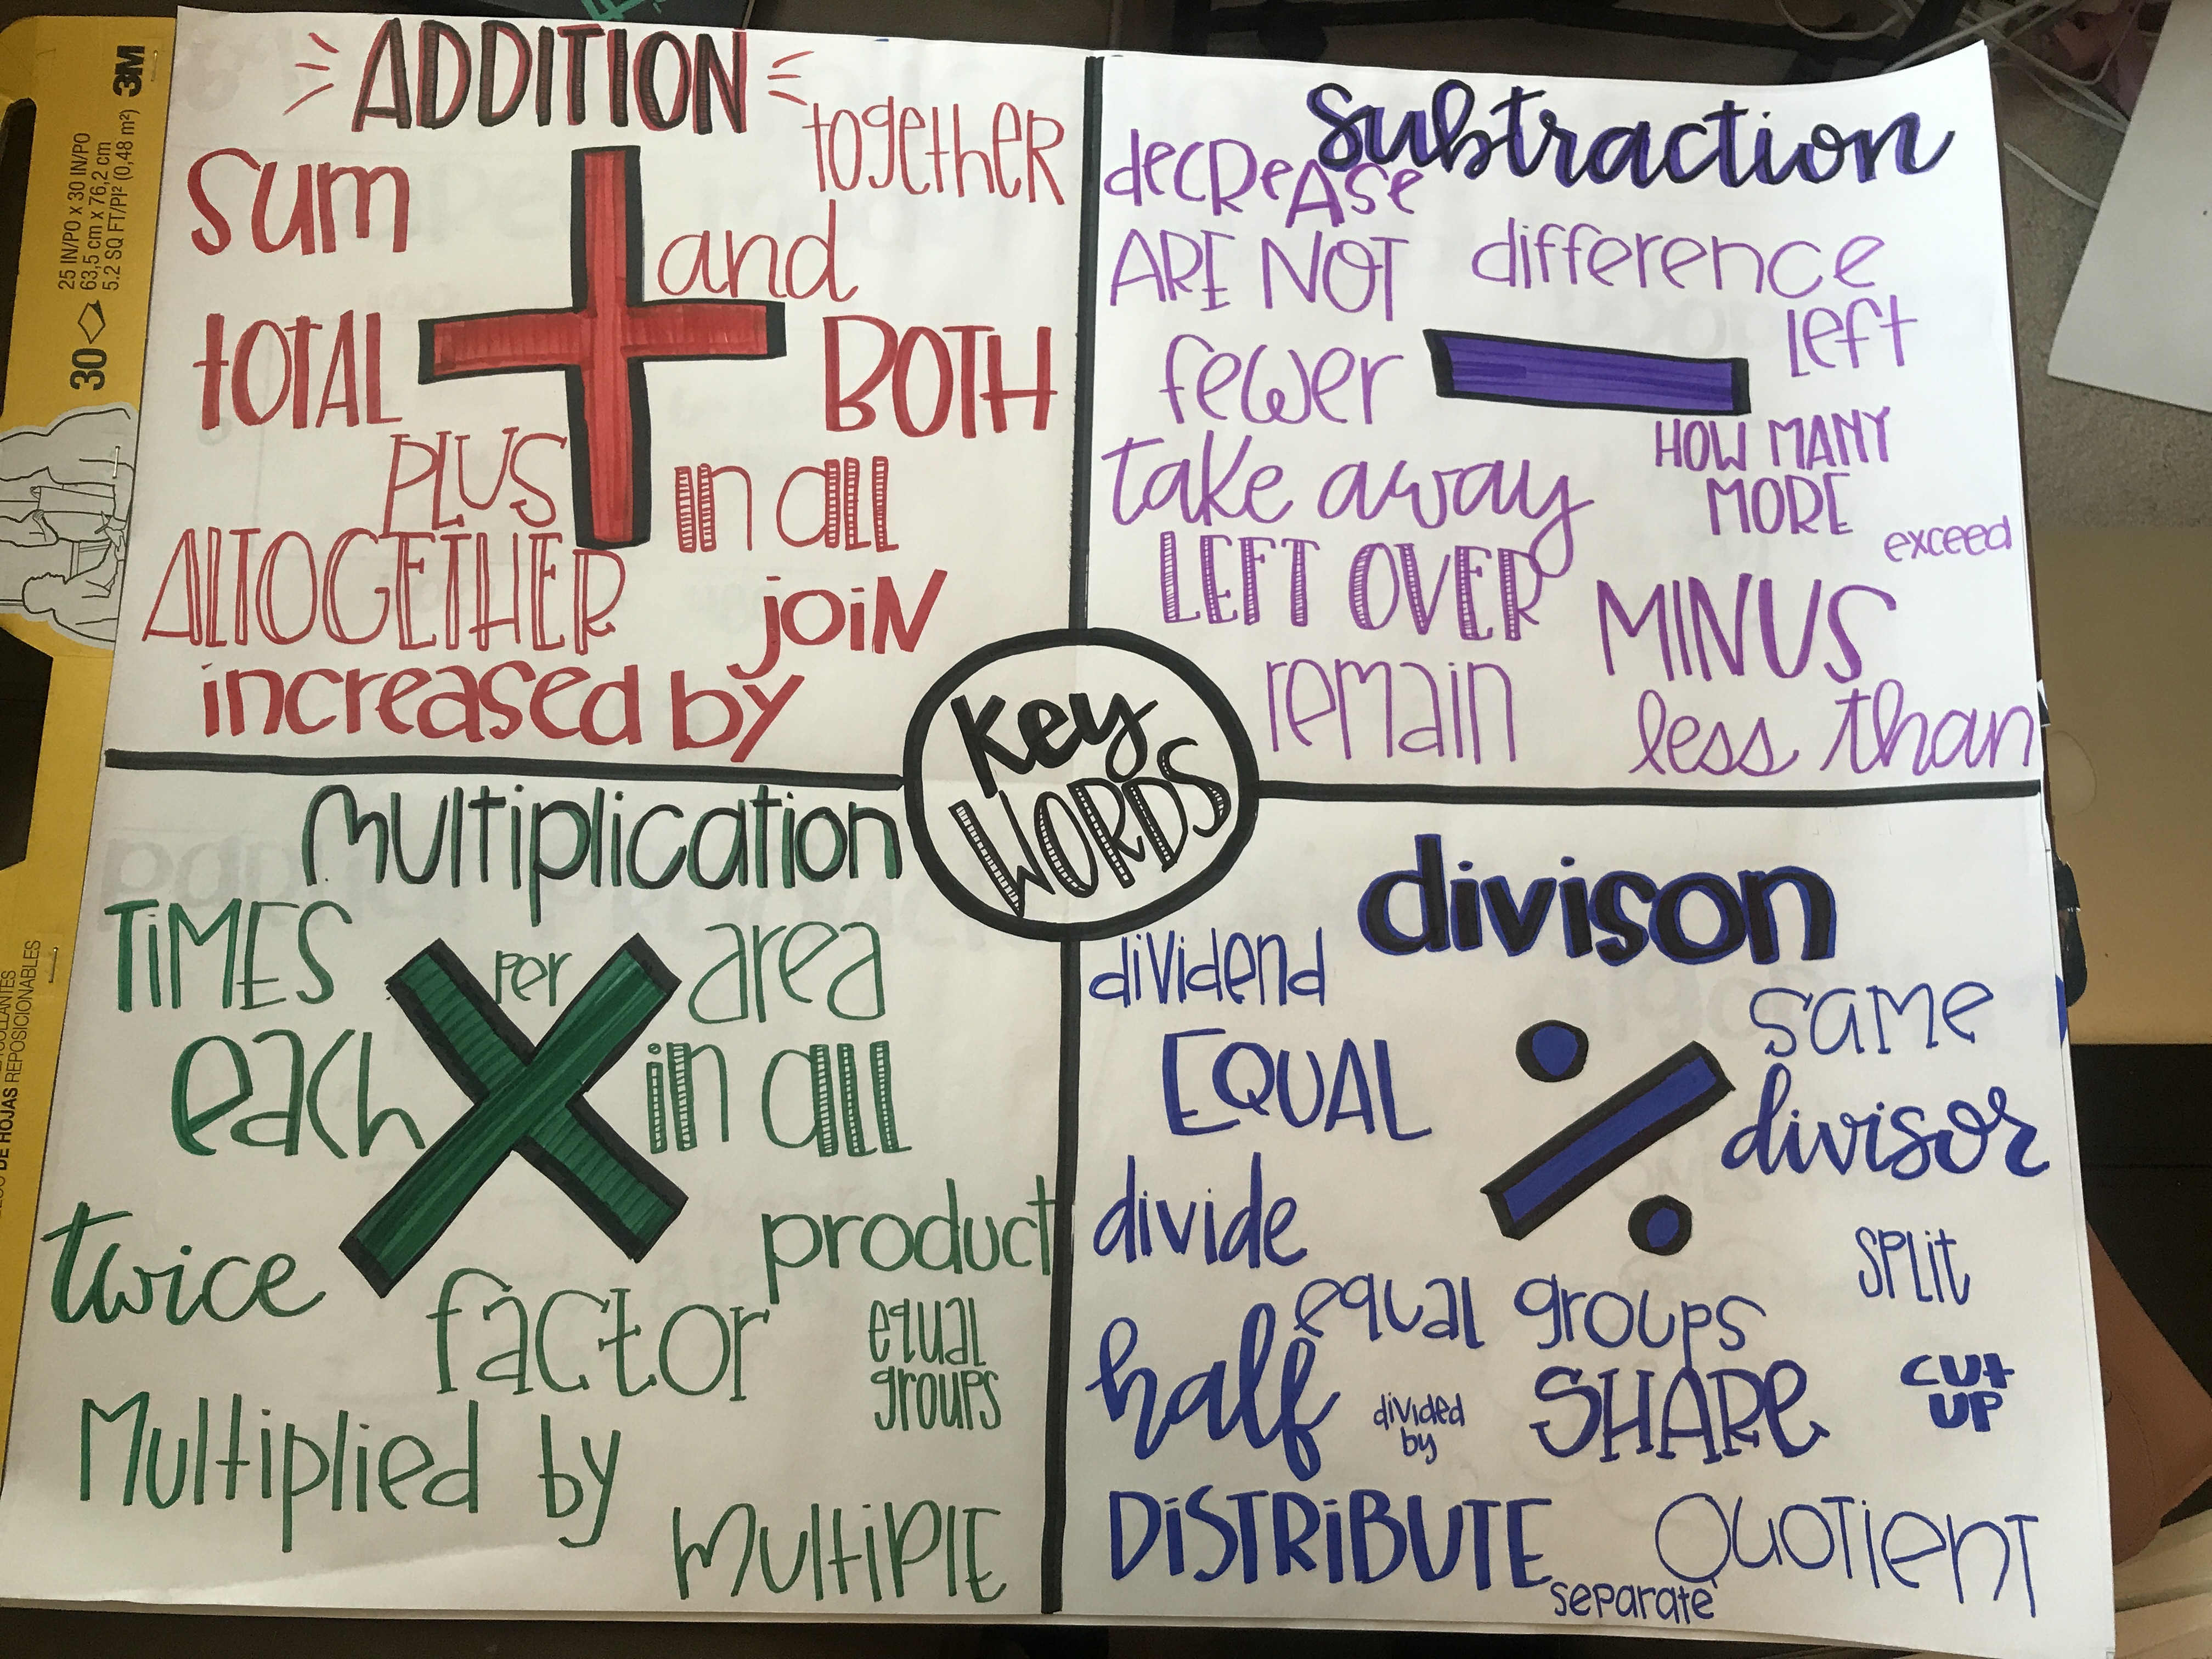 ADDITION
together
sum
and
tOTAL
BOTH
PLUS
in all
ALTOGETHER
joiN
increased by
subtraction
decReAse
ARE NOT
difference
left
fewer
HOW MANY
MORE
take away
exceed
LEFT OVER
MINUS
remain
less than
Key
WORDS
multiplication
TiMES
Per
area
each
in all
twice
product
factor
equal
groups
Multiplied by
multiPlE
divison
dividend
same
EQUAL
divisor
divide
SPLit
equal groups
half
divided
by
SHARe
cut
UP
DiSTRiBUTE
QuOTienT
separate
3M
30
25 IN/PO x 30 IN/PO
63,5 cm x 76,2 cm
5.2 SQ FT/PI² (0,48 m²)
DE HOJAS REPOSICIONABLES